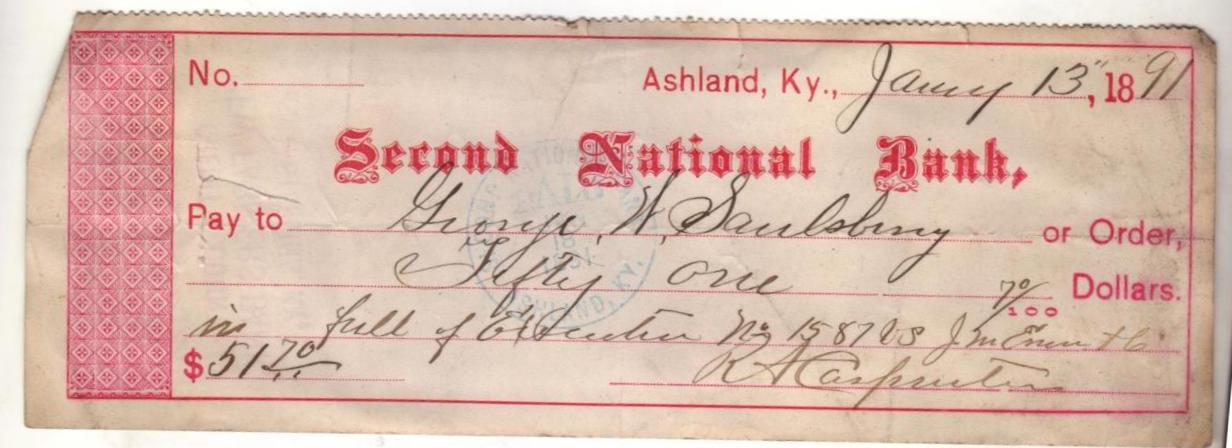 No. Ashland, Ky., Jany 13", 1891
Second National Bank,
Pay to George. W. Saulsberry or Order,
Fifty one 70/100 Dollars.
in full of Execution No 1587 vs J M & Co
$51 70 R A Carpenter
ASHLAND, KY.